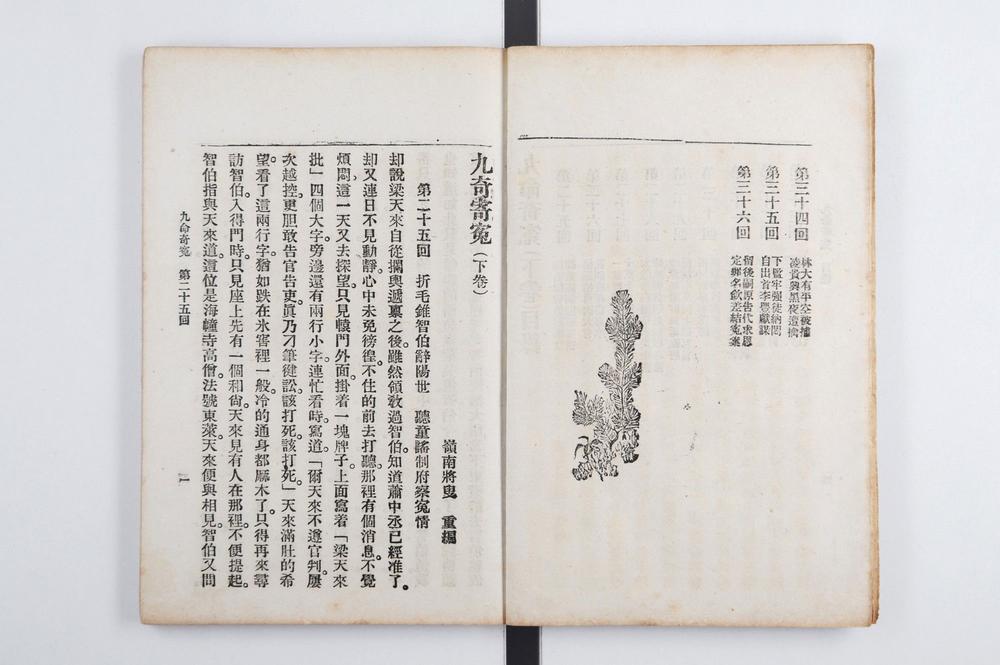 第三十四回
林大有平空被捕
凌貴興黑夜遭擒
第三十五回
下監牢强徒納悶
自出首李豐獻謀
第三十六回
留後嗣原告代求恩
定罪名欽差結冤案
九奇寄冤（下卷）
嶺南將叟　重編
第二十五回　折毛錐智伯辭陽世　聽童謠制府察冤情
却說梁天來自從攔輿遞稟之後。雖然領敎過智伯。知道蕭中丞已經准了。
却又連日不見動靜。心中未免徬徨。不住的前去打聽。那裡有個消息。不覺
煩悶。這一天又去探望。只見轅門外面掛着一塊牌子。上面寫着「梁天來
批」四個大字。旁邊還有兩行小字。連忙看時。寫道「爾天來不遵官判。屢
次越控。更胆敢吿官吿吏。眞乃刁筆健訟。該打死。該打死。」天來滿肚的希
望。看了這兩行字。猶如跌在氷窖裡一般。冷的通身都麻木了。只得再來尋
訪智伯。入得門時。只見座上先有一個和尙。天來見有人在那裡。不便提起。
智伯指與天來道。這位是海幢寺高僧。法號東萊。天來便與相見。智伯又問
九命奇冤　第二十五回
一